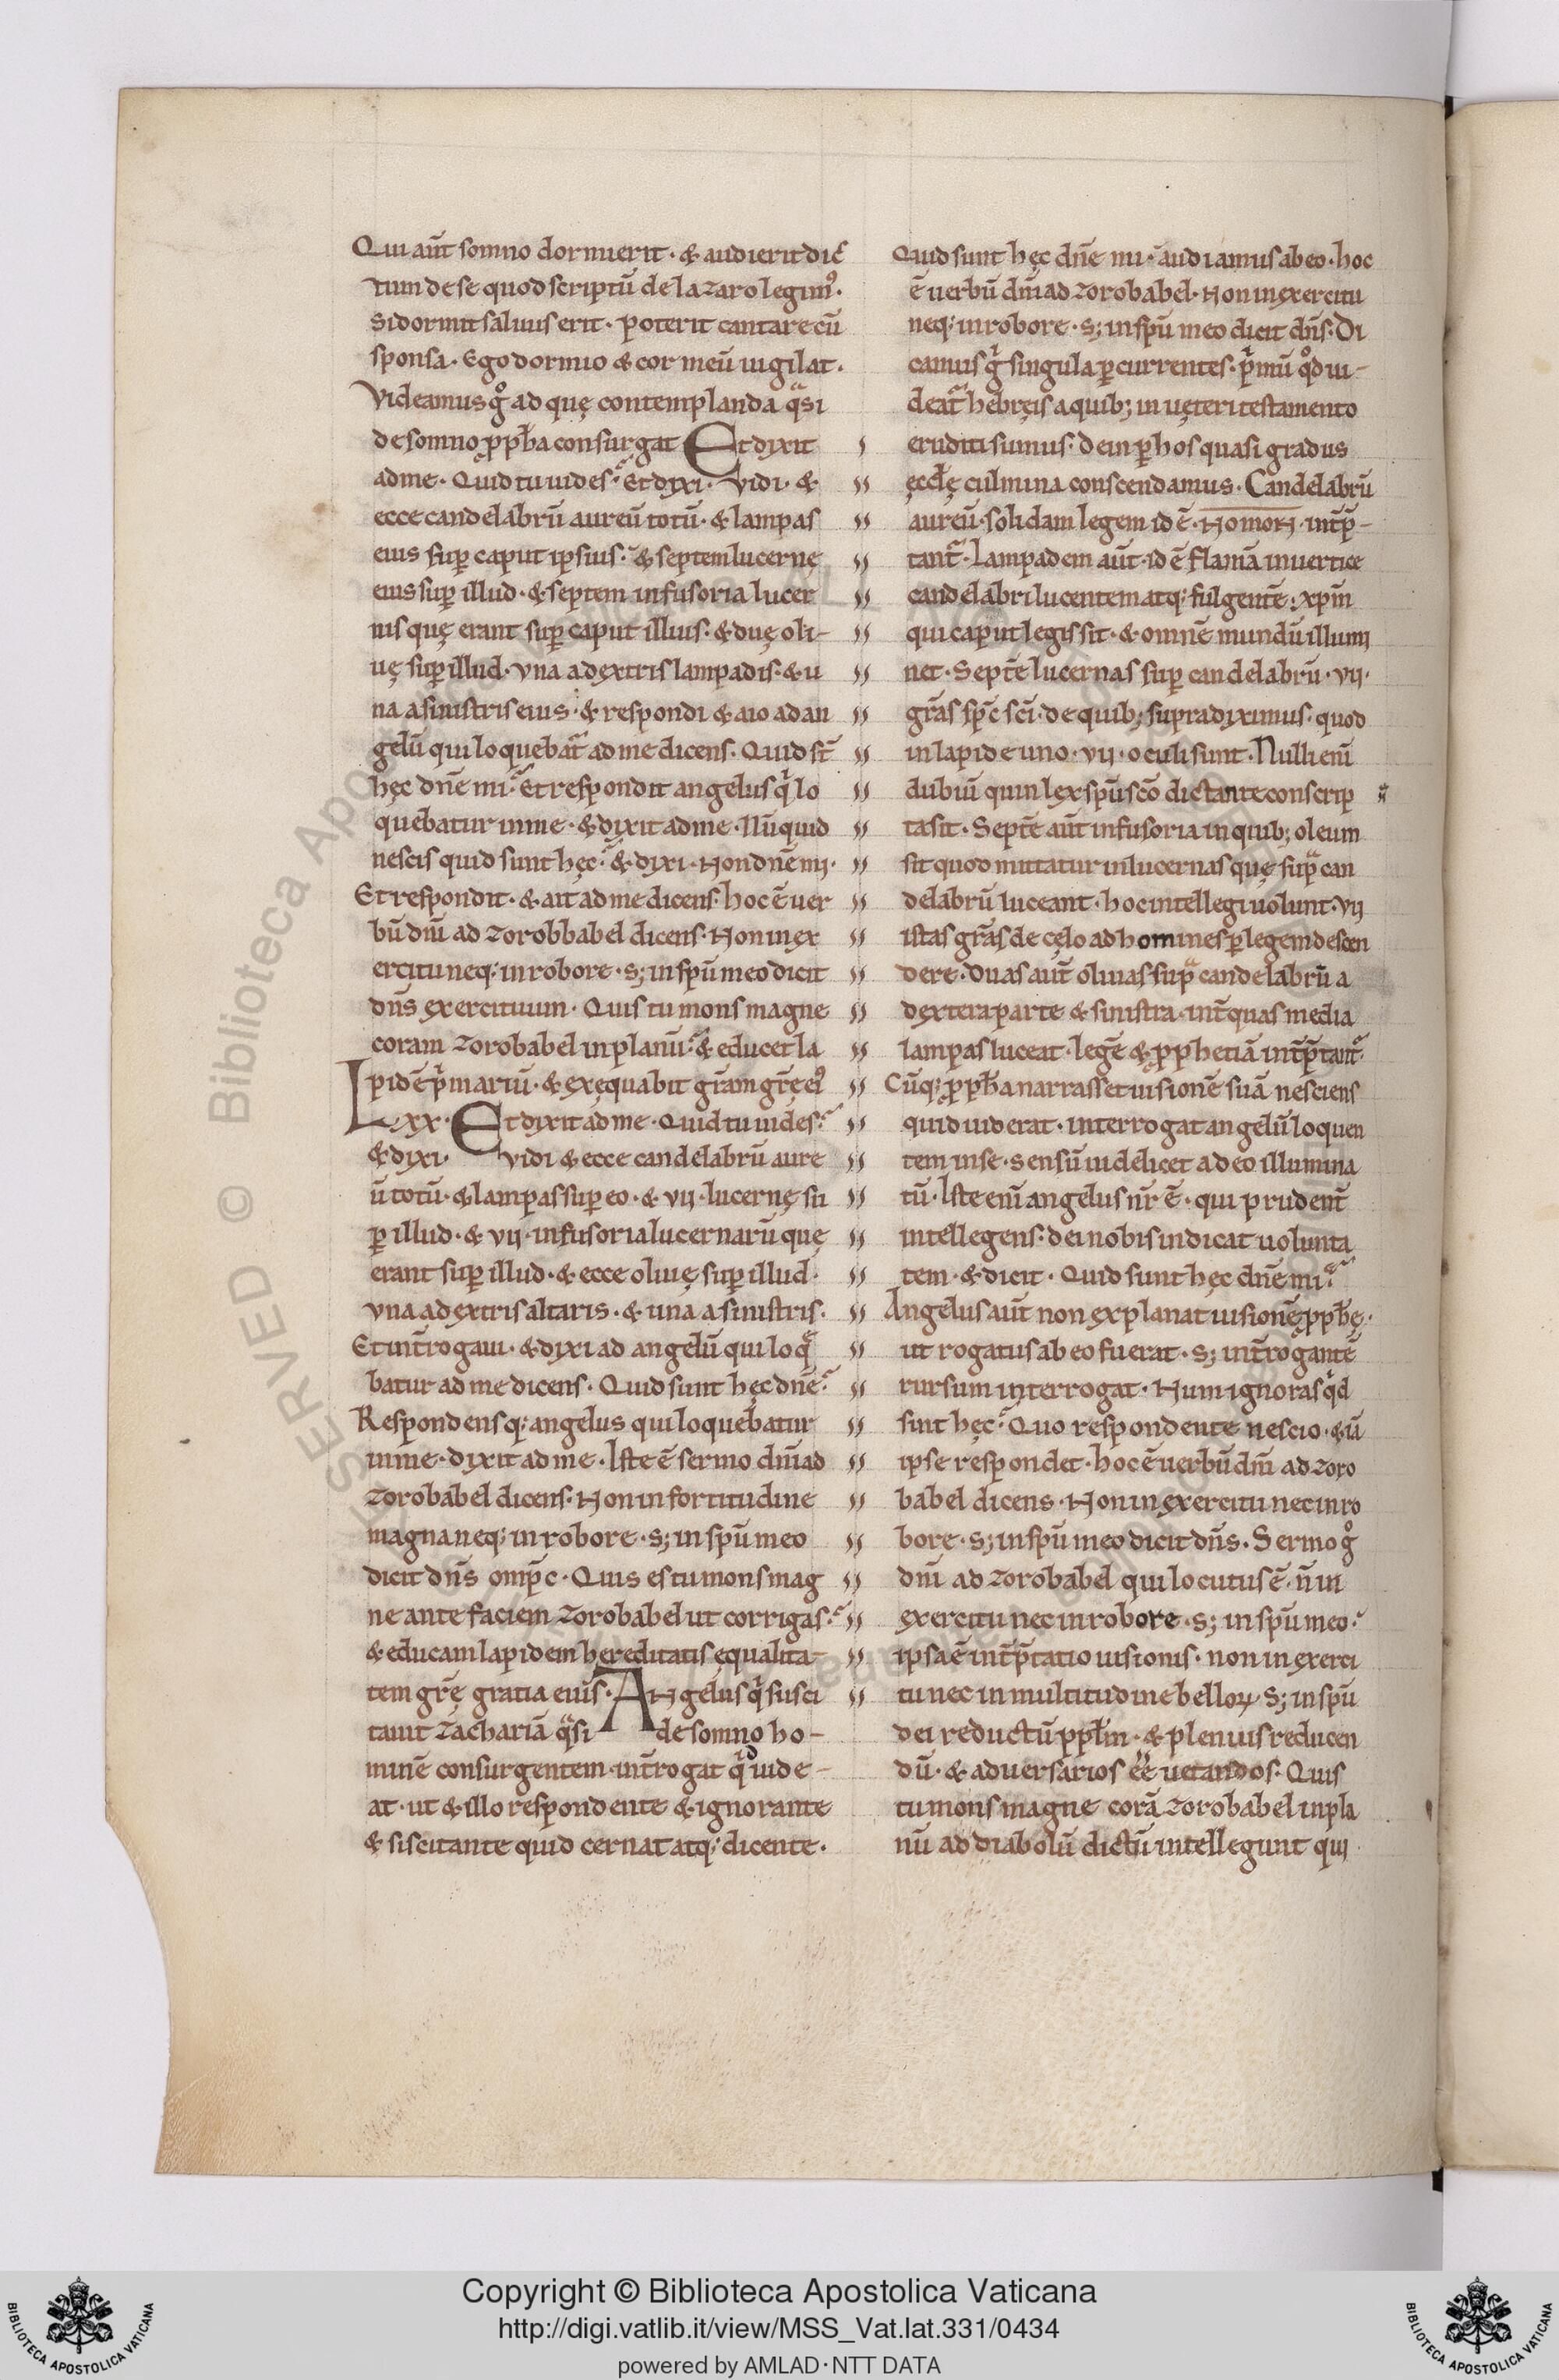 Qui aut̄ somno dormierit · & audierit dic̄
tum de se quod scriptū de lazaro legimꝰ ·
Si dormit saluus erit · poterit cantare cū
sponsa · Ego dormio & cor meū uigilat ·
Videamus gͦ ad quę contemplanda qͣsi
de somno ꝓph̄a consurgat Et dixit
ad me · Quid tu uides? Et dixi · Vidi · &
ecce candelabrū aureū totū · & lampas
eius suꝑ caput ipsius · & septem lucernę
eius suꝑ illud · & septem infusoria lucer
nis quę erant suꝑ caput illius · & duę oli-
uę suꝑ illud · vna a dextris lampadis · & u
na a sinistris eius · & respondi & aio ad an
gelū qui loquebat᷑ ad me dicens · Quid st̄
hęc dn̄e mi? Et respondit angelus qͥ lo
quebatur in me · & dixit ad me · Nūquid
nescis quid sunt hęc? & dixi · Non dn̄e mi ·
Et respondit · & ait ad me dicens · hoc ē uer
bū dn̄i ad zorobbabel dicens · Non in ex
ercitu neq; in robore · s; in spū meo dicit
dn̄s exercituum · Quis tu mons magne
coram zorobabel in planū? & educet la
pidē pͥmariū · & exęquabit gr̄am gr̄ę eiꝰ
Lxx · Et dixit ad me · Quid tu uides?
& dixi · vidi & ecce candelabrū aure
ū totū · & lampas suꝑ eo · & vii · lucernę su
ꝑ illud · & vii · infusoria lucernarū quę
erant suꝑ illud · & ecce oliuę suꝑ illud ·
vna a dextris altaris · & una a sinistris ·
Et int̄rogaui · & dixi ad angelū qui loq̄
batur ad me dicens · Quid sunt hęc dn̄e?
Respondensq; angelus qui loquebatur
in me · dixit ad me · Iste ē sermo dn̄i ad
zorobabel dicens · Non in fortitudine
magna neq; in robore · s; in spū meo
dicit dn̄s omp̄c · Quis es tu mons mag
ne ante faciem zorobabel ut corrigas?
& educam lapidem hereditatis ęqualita-
tem gr̄ę gratia eius · Angelus qͥ susci
tauit zachariā qͣsi de somno ho-
minē consurgentem · int̄rogat qͥd uide-
at · ut & illo respondente & ignorante
& siscitante quid cernat atq; dicente ·
Quid sunt hęc dn̄e mi · audiamus ab eo · hoc
ē uerbū dn̄i ad zorobabel · Non in exercitu
neq; in robore · s; in spū meo dicit dn̄s · Di
camus gͥ singula ꝑcurrentes · pͥmū qͦd ui-
deat᷑ hebręis a quib; in uęteri testamento
eruditi sumus · dein ꝑ hos quasi gradus
ęccl̄ę culmina conscendamus · Candelabrū
aureū · solidam legem id ē · NOMON · int̄p̄-
tant᷑ · Lampadem aut̄ · id ē flamā in uertice
candelabri lucentem atq; fulgentē · xp̄m
qui caput legis sit · & omnē mundū illumi
net · Septē lucernas suꝑ candelabrū · vii ·
gr̄as sp̄c sc̄i · de quib; supra diximus · quod
in lapide uno · vii · oculi sunt · Nulli enī
dubiū quin lex spū scō dictante conscrip
ta sit · Septē aut̄ infusoria in quib; oleum
sit quod mittatur in lucernas quę supͣ can
delabrū luceant · hoc intellegi uolunt · vii
istas gr̄as de cęlo ad homines ꝑ legem descen
dere · Duas aut̄ oliuas supͣ candelabrū a
dextera parte & sinistra · int̄ quas media
lampas luceat · legē & ꝓphetiā int̄p̄tant᷑ ·
Cūq; ꝓph̄a narrasset uisionē suā nesciens
quid uiderat · interrogat angelū loquen
tem in se · sensū uidelicet a deo illumina
tū · Iste enī angelus nr̄ ē · qui prudent̄
intellegens · dei nobis indicat uolunta
tem · & dicit · Quid sunt hęc dn̄e mi?
Angelus aut̄ non explanat uisionē ꝓph̄ę ·
ut rogatus ab eo fuerat · s; int̄rogantē
rursum interrogat · Num ignoras qͥd
sint hęc? Quo respondente nescio · & iā
ipse respondet · hoc ē uerbū dn̄i ad zoro
babel dicens · Non in exercitu nec in ro
bore · s; in spū meo dicit dn̄s · Sermo gͦ
dn̄i ad zorobabel qui locutus ē · n̄ in
exercitu nec in robore · s; in spū meo ·
ipsa ē int̄p̄tatio uisionis · non in exerci
tu nec in multitudine belloꝝ · s; in spū
dei reductū ppl̄m · & plenius reducen
dū · & aduersarios ēē uetandos · Quis
tu mons magne corā zorobabel in pla
nū ad diabolū dictū intellegunt qui
Copyright © Biblioteca Apostolica Vaticana
http://digi.vatlib.it/view/MSS_Vat.lat.331/0434
powered by AMLAD · NTT DATA
BIBLIOTECA APOSTOLICA VATICANA
BIBLIOTECA APOSTOLICA VATICANA